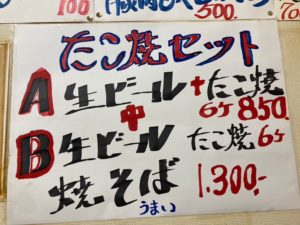 100
500.
70
たこ焼セット
A 生ビール + たこ焼
中 6ケ 850.
B 生ビール たこ焼 6ケ
焼そば 1.300.-
うまい